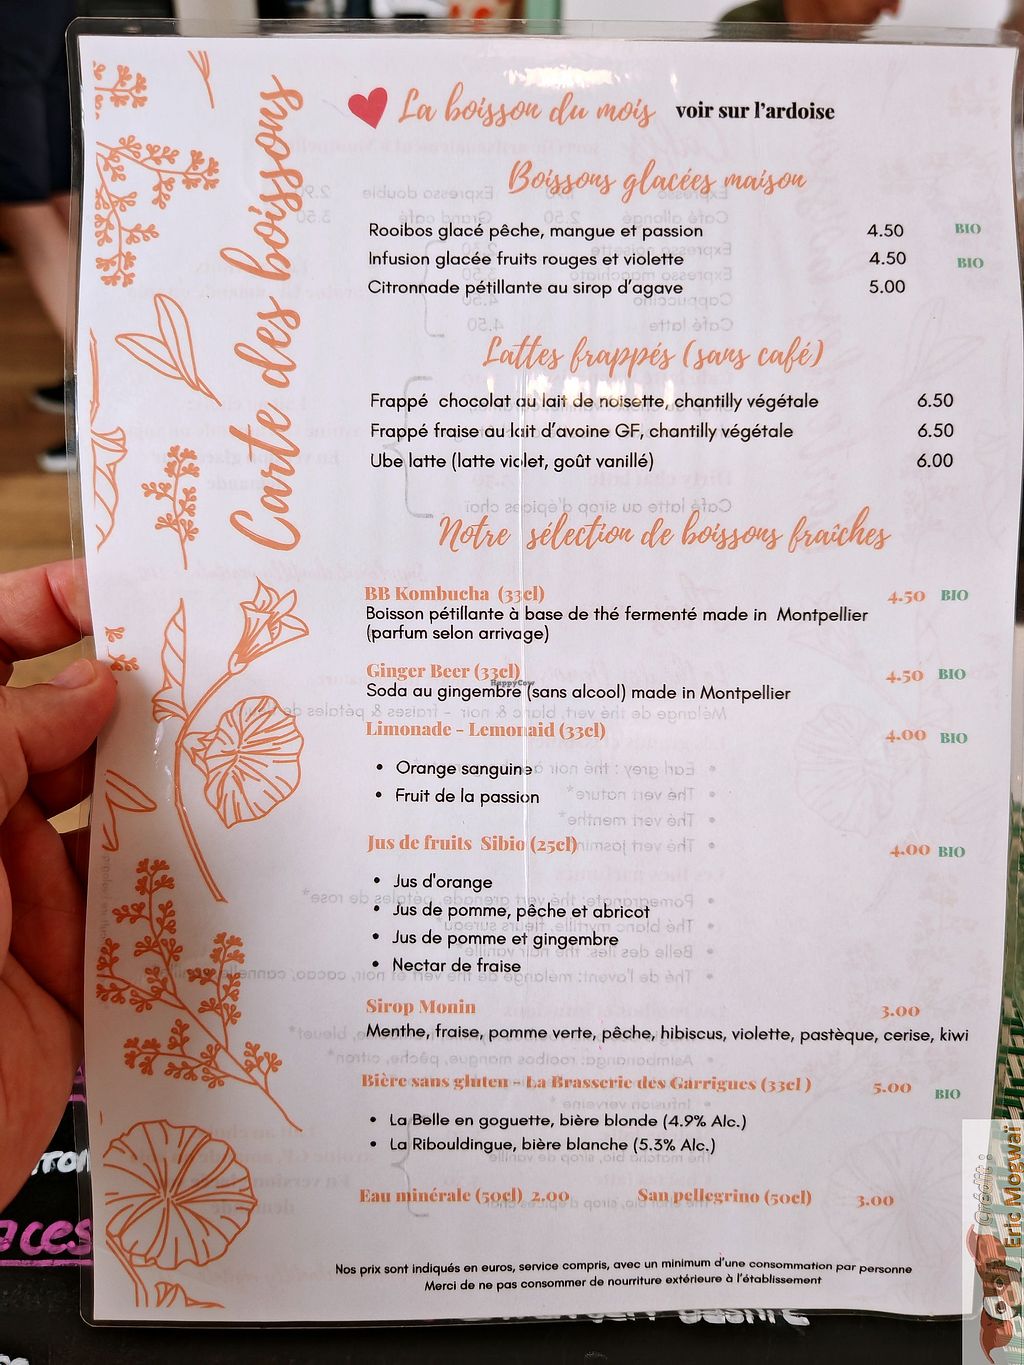 Carte des boissons
La boisson du mois voir sur l'ardoise
Boissons glacées maison
Rooibos glacé pêche, mangue et passion 4.50 BIO
Infusion glacée fruits rouges et violette 4.50 BIO
Citronnade pétillante au sirop d'agave 5.00
Lattes frappés (sans café)
Frappé chocolat au lait de noisette, chantilly végétale 6.50
Frappé fraise au lait d'avoine GF, chantilly végétale 6.50
Ube latte (latte violet, goût vanillé) 6.00
Notre sélection de boissons fraîches
BB Kombucha (33cl) 4.50 BIO
Boisson pétillante à base de thé fermenté made in Montpellier
(parfum selon arrivage)
Ginger Beer (33cl) 4.50 BIO
HappyCow
Soda au gingembre (sans alcool) made in Montpellier
Limonade - Lemonaid (33cl) 4.00 BIO
• Orange sanguine
• Fruit de la passion
Jus de fruits Sibio (25cl) 4.00 BIO
• Jus d'orange
• Jus de pomme, pêche et abricot
• Jus de pomme et gingembre
• Nectar de fraise
Sirop Monin 3.00
Menthe, fraise, pomme verte, pêche, hibiscus, violette, pastèque, cerise, kiwi
Bière sans gluten - La Brasserie des Garrigues (33cl ) 5.00 BIO
• La Belle en goguette, bière blonde (4.9% Alc.)
• La Ribouldingue, bière blanche (5.3% Alc.)
Eau minérale (50cl) 2.00 San pellegrino (50cl) 3.00
Nos prix sont indiqués en euros, service compris, avec un minimum d'une consommation par personne
Merci de ne pas consommer de nourriture extérieure à l'établissement
Crédit :
Eric Mogwaï